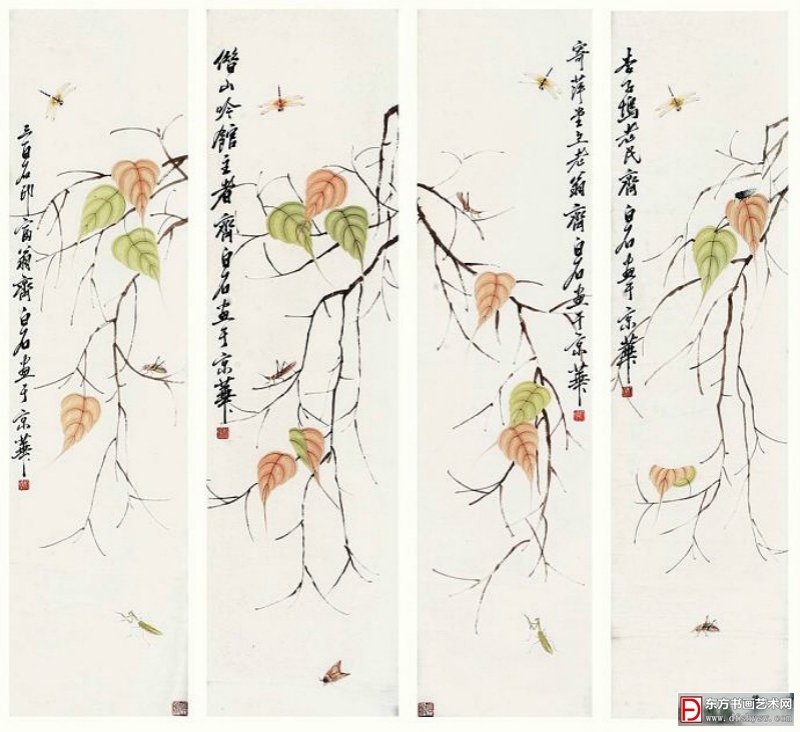 三百石印富翁齊白石畫于京華
借山吟館主者齊白石畫于京華
寄萍堂上老翁齊白石畫于京華
杏子隖老民齊白石畫于京華
东方书画艺术网
www.dfshysw.com